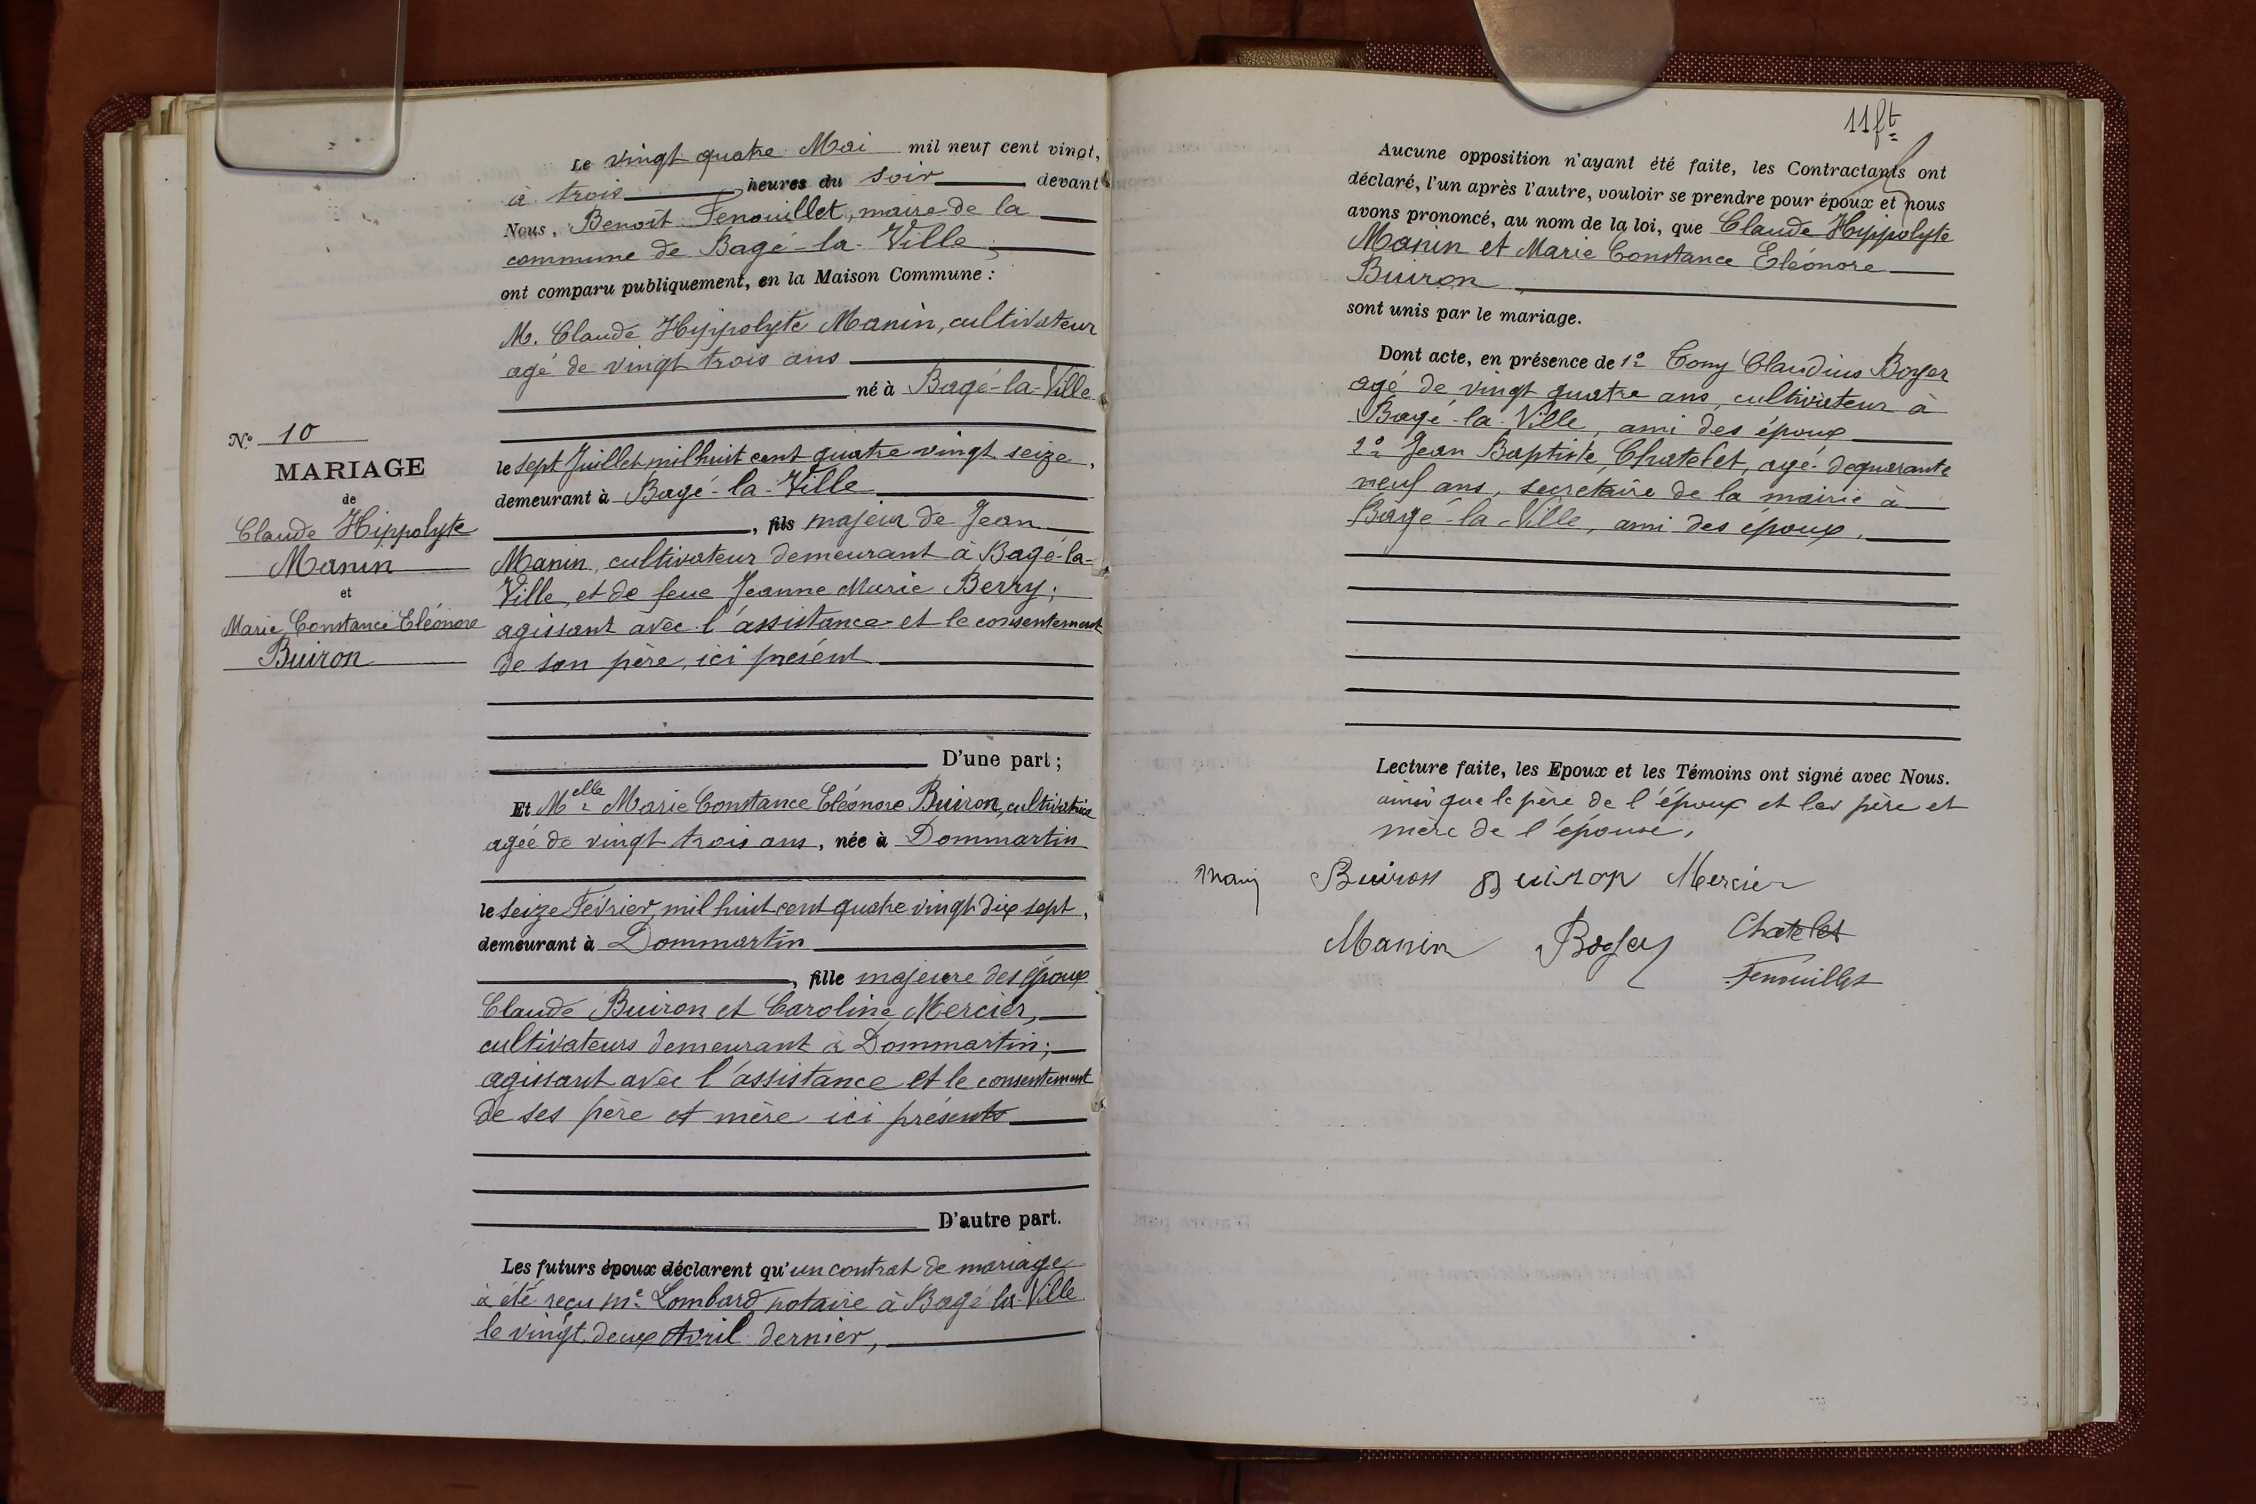 Le vingt quatre Mai mil neuf cent vingt,
à trois heures du soir devant
Nous, Benoît Fenouillet, maire de la
commune de Bagé-la-Ville,
ont comparu publiquement, en la Maison Commune :
M. Claude Hippolyte Manin, cultivateur
agé de vingt trois ans
né à Bagé-la-Ville
le sept Juillet mil huit cent quatre vingt seize,
demeurant à Bagé-la-Ville
, fils majeur de Jean
Manin, cultivateur demeurant à Bagé-la-
Ville, et de feue Jeanne Marie Berry;
agissant avec l'assistance et le consentement
de son père, ici présent
D'une part ;
Et Melle Marie Constance Eléonore Buiron, cultivatrice
agée de vingt trois ans, née à Dommartin
le seize Février, mil huit cent quatre vingt dix sept,
demeurant à Dommartin
, fille majeure des époux
Claude Buiron et Caroline Mercier,
cultivateurs demeurant à Dommartin;
agissant avec l'assistance et le consentement
de ses père et mère ici présents
D'autre part.
Les futurs époux déclarent qu'un contrat de mariage
à été reçu Me Lombard notaire à Bagé-la-Ville
le vingt deux Avril dernier,
N° 10
MARIAGE
de
Claude Hippolyte
Manin
et
Marie Constance Eléonore
Buiron
11 ft
Aucune opposition n'ayant été faite, les Contractants ont
déclaré, l'un après l'autre, vouloir se prendre pour époux et nous
avons prononcé, au nom de la loi, que Claude Hippolyte
Manin et Marie Constance Eléonore
Buiron
sont unis par le mariage.
Dont acte, en présence de 1° Tony Claudius Boyer
agé de vingt quatre ans, cultivateur à
Bagé-la-Ville, ami des époux
2° Jean Baptiste Chatelet, agé de quarante
neuf ans, secretaire de la mairie à
Bagé-la-Ville, ami des époux.
Lecture faite, les Epoux et les Témoins ont signé avec Nous.
ainsi que le père de l'époux et les père et
mère de l'épouse.
Manin Buiron Buiron Mercier
Manin Boyer Chatelet
Fenouillet